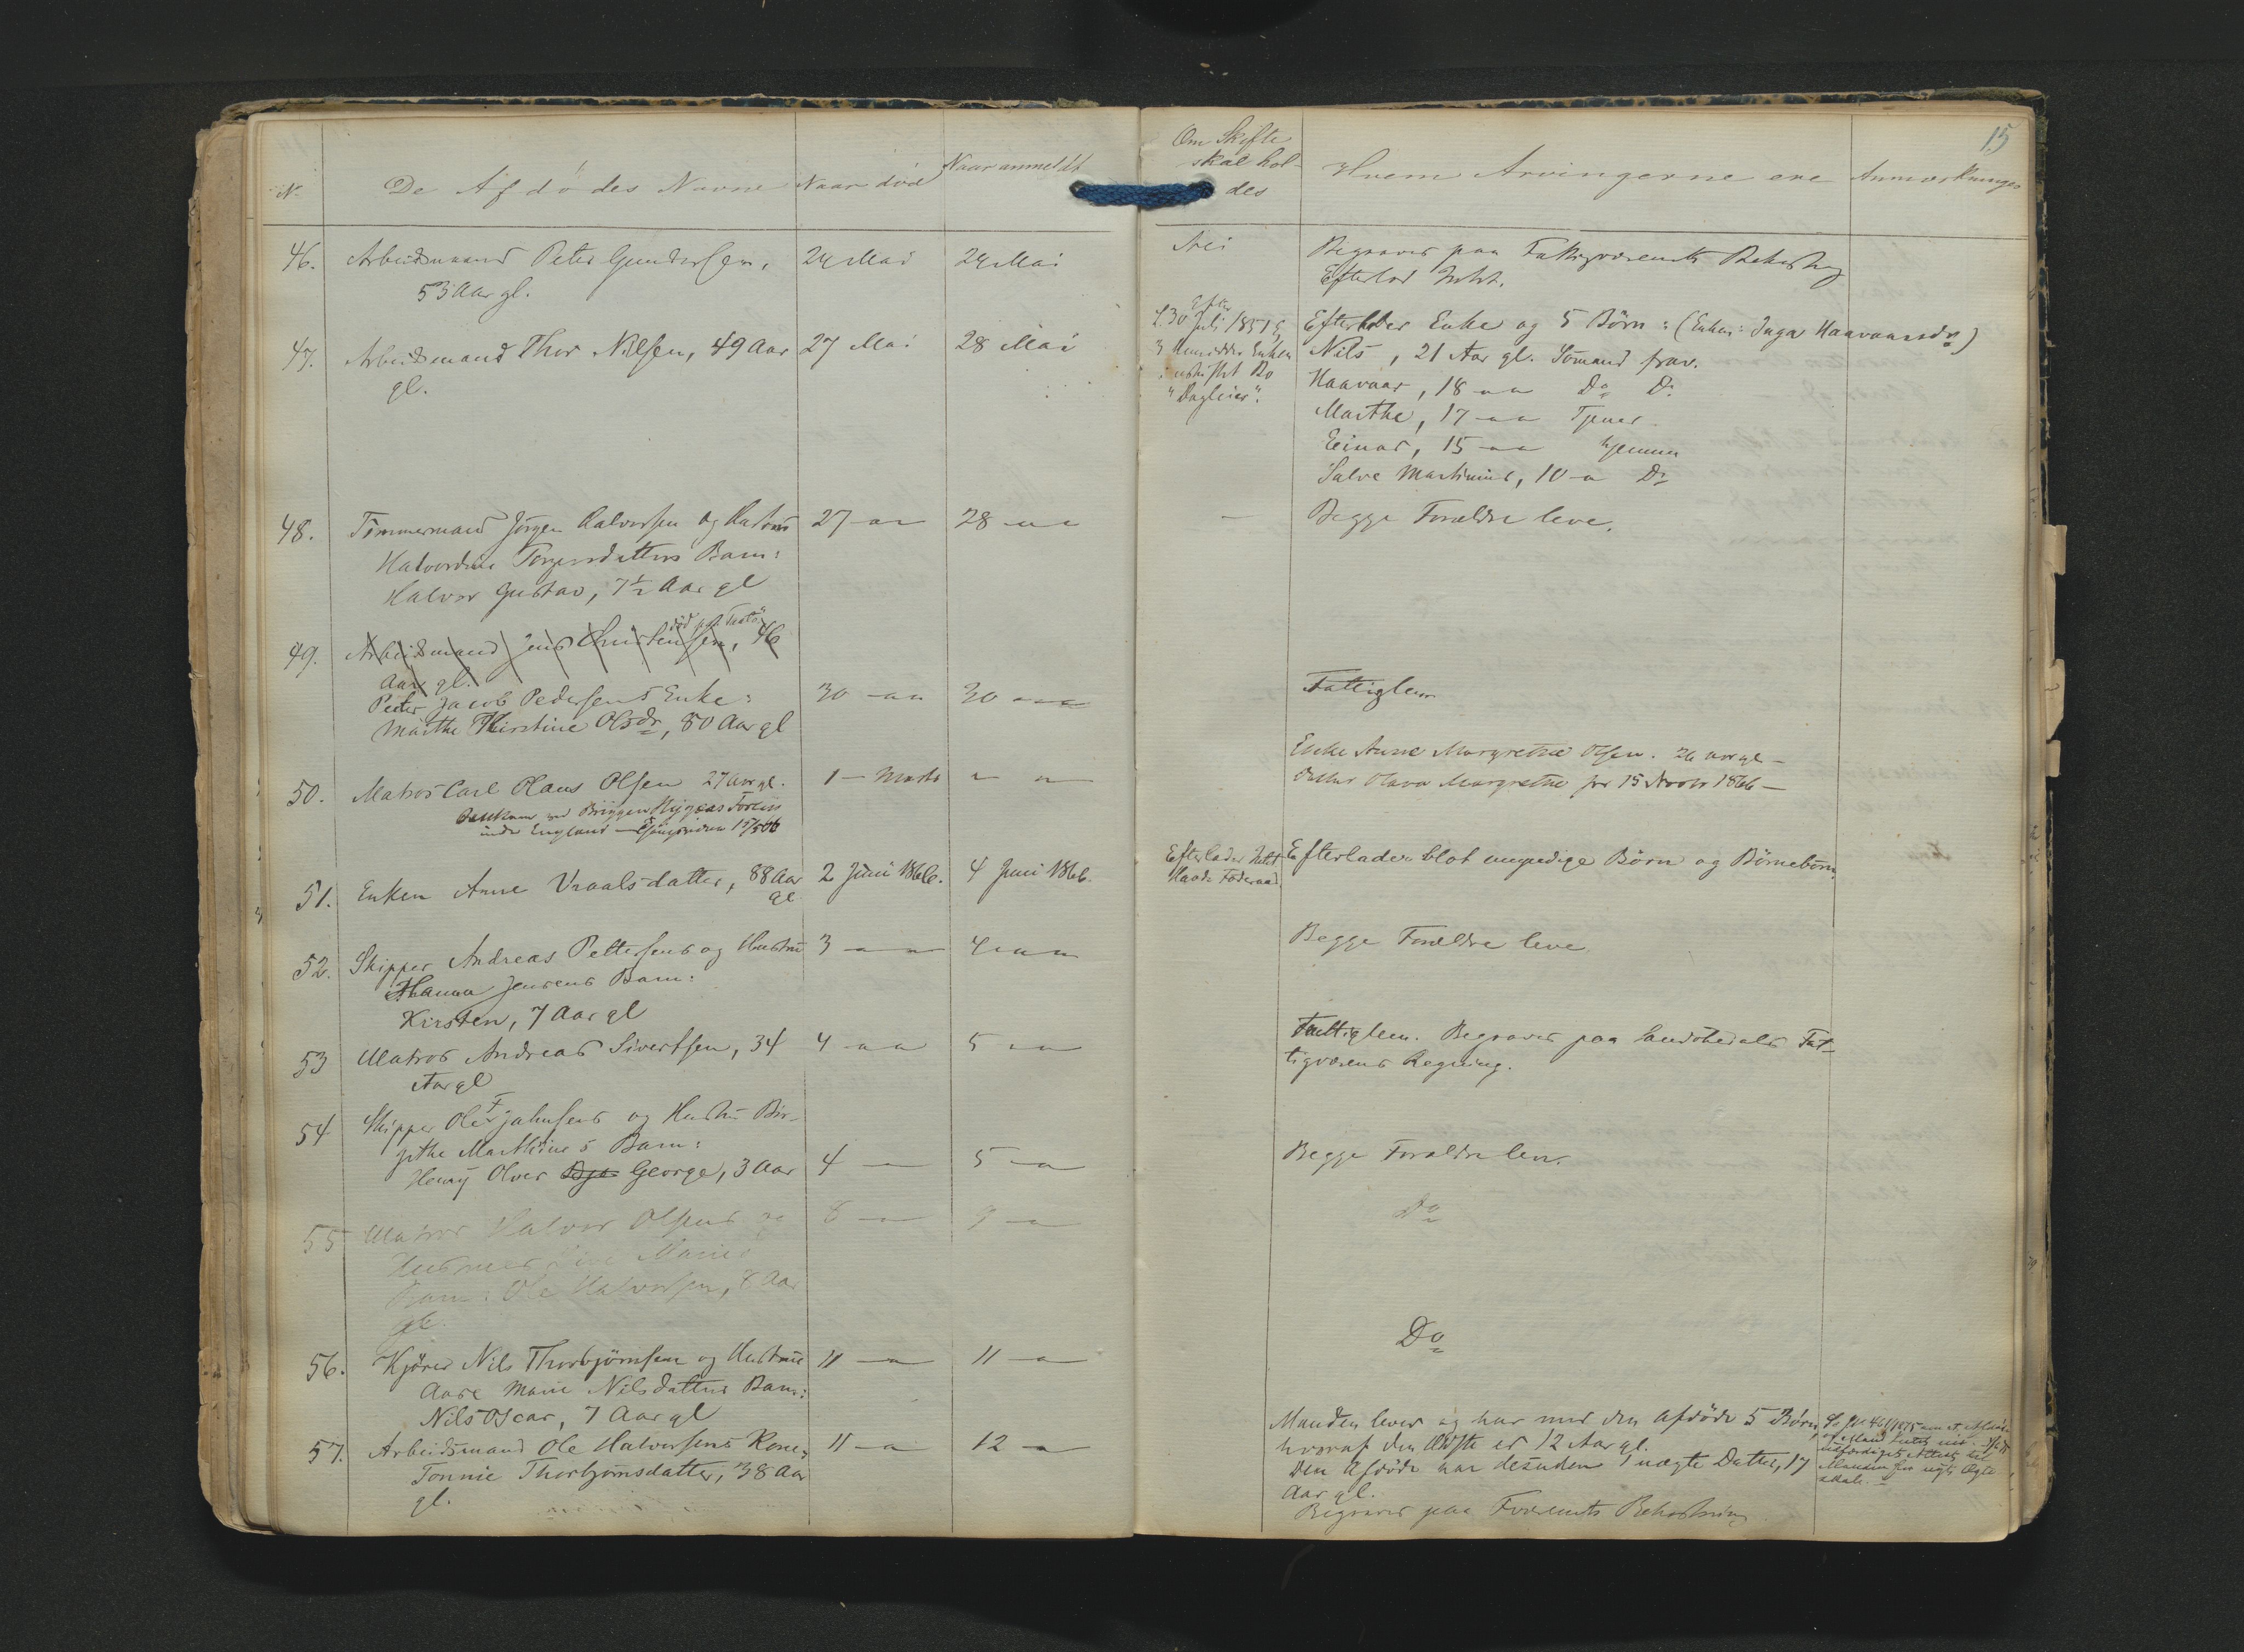 15
N.
De Afdødes Navne
Naar død
Naar anmeldt
Om Skifte
skal hol-
des
Hvem Arvingerne ere
Anmærkninger
46.
Arbeidsmand Peter Gundersen,
53 Aar gl.
24 Mai
24 Mai
Nei
Begraves paa Fattigvæsenets Bekostning
Efterlod Intet.
47.
Arbeidsmand Thor Nilsen, 49 Aar
gl.
27 Mai
28 Mai
Efter
L. 30 Juli 1851 §
3 Enken
i uskiftet Bo
Efterlader Enke og 5 Börn: (Enken: Inga Haavaarsdr)
Nils, 21 Aar gl. Sömand frav.
Haavaar, 18 — Do Do
Marthe, 17 — Tjener
Einar, 15 — hjemme
Salve Martinius, 10 — Do
48.
Tömmermand Jörgen Halvorsen og Hustru
Halvordine Torgersdatters Barn:
Halvor Gustav, 7½ Aar gl
27 —
28 —
—
Begge Forældre leve.
49.
Arbeidsmand Jens Christensen, 46
Aar gl.
Peder Jacob Pedersens Enke:
Marthe Kirstine Olsdr, 80 Aar gl
30 —
30 —
Fattiglem
50.
Matros Carl Olaus Olsen 27 Aar gl.
Briggen Hygæas Forlis
under England
1 — Marts
— —
Enke Anne Margrethe Olsen. 26 Aar gl —
Datter Olava Margrethe för 15 Novbr 1866 —
51.
Enken Anne Vraalsdatter, 88 Aar
gl
2 Juni 1866.
4 Juni 1866.
Efterlader Intet
Havde Föderaad.
Efterlader blot myndige Börn og Börnebörn.
52.
Skipper Andreas Pettersens og Hustru
Hanna Jensens Barn:
Kirsten, 7 Aar gl
3 — —
4 — —
Begge Forældre leve
53
Matros Andreas Sivertsen, 34
Aar gl
4 — —
5 — —
Fattiglem. Begraves paa Landvikeids Fat-
tigvæsens Regning.
54
Skipper Ole F Jahnsens og Hustru Bir-
githe Marthine's Barn:
Henry Olves George, 3 Aar
4 —
5 —
Begge Forældre leve.
55
Matros Halvor Olsens og
Hustrues Marie's
Barn: Ole Halvorsen, 8 Aar
gl.
8 —
9 —
Do
56.
Kjörer Nils Thorbjörnsen og Hustrue
Aase Marie Nilsdatters Barn:
Nils Oscar, 7 Aar gl
11 —
11 —
Do
57.
Arbeidsmand Ole Halvorsens Kone,
Tonnie Thorbjörnsdatter, 38 Aar
gl.
11 —
12 —
Manden lever og har med den afdöde 5 Börn,
hvoraf den Ældste er 12 Aar gl.
Den Afdöde har desuden 1 uægte Datter, 17
Aar gl.
Begraves paa Fvæsenets Bekostning
Attest til
Manden for nyt Ægte
skab.